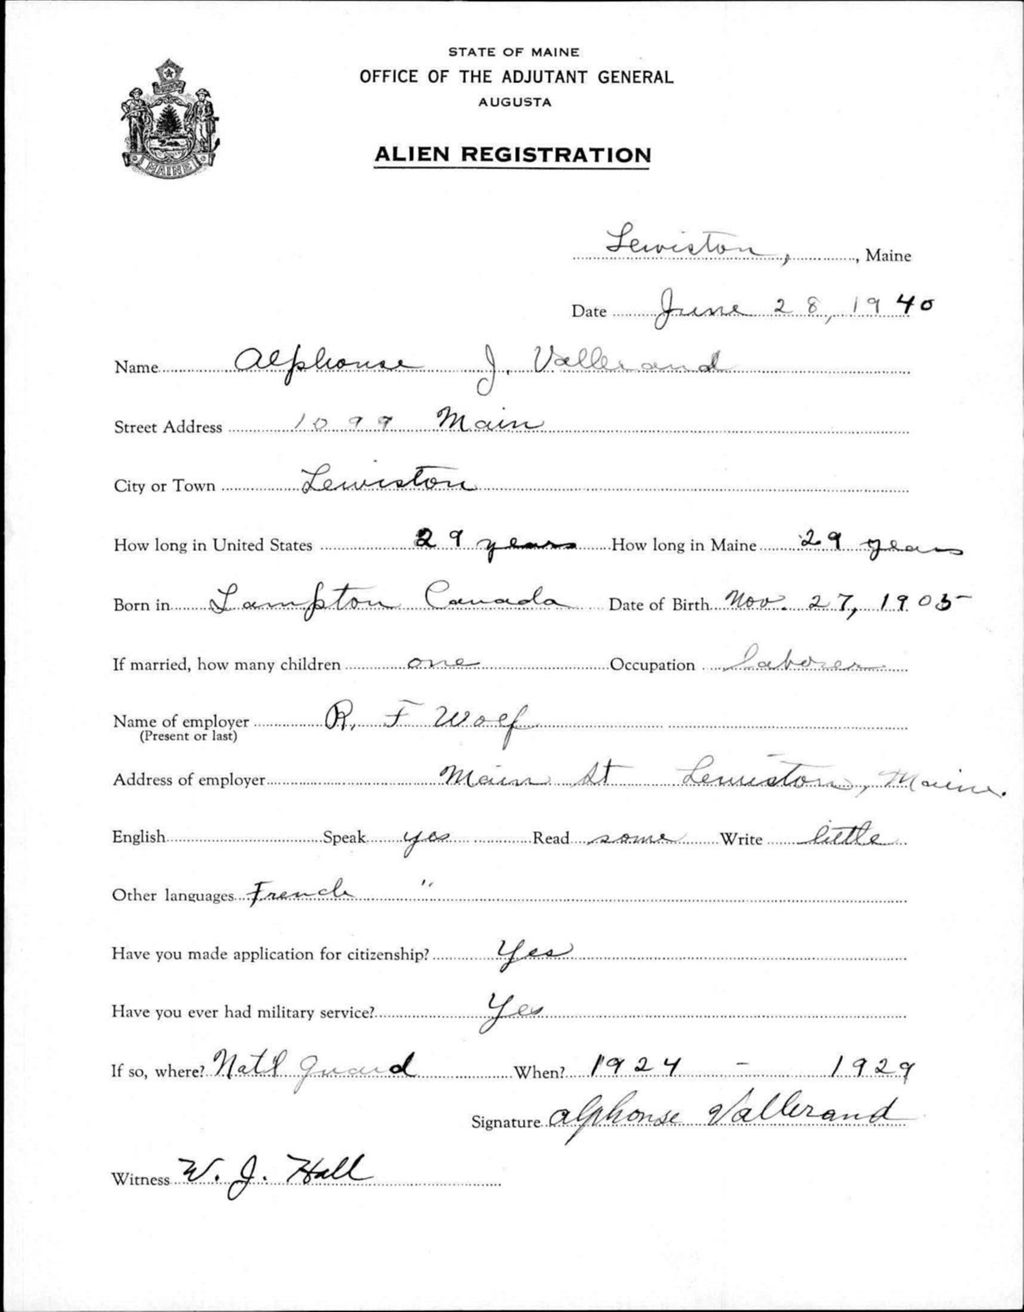 STATE OF MAINE
OFFICE OF THE ADJUTANT GENERAL
AUGUSTA
ALIEN REGISTRATION
MAINE
Lewiston, , Maine
Date June 28, 1940
Name Alphonse J. Vallerand
Street Address 1099 Main
City or Town Lewiston
How long in United States 29 years How long in Maine 29 years
Born in Lampton Canada Date of Birth Nov. 27, 1905
If married, how many children one Occupation laborer
Name of employer R. F Wolf
(Present or last)
Address of employer Main St Lewiston, Maine.
English Speak yes Read some Write little
Other languages French "
Have you made application for citizenship? Yes
Have you ever had military service? Yes
If so, where? Nat'l Guard When? 1924 - 1929
Signature Alphonse Vallerand
Witness W. J. Hall